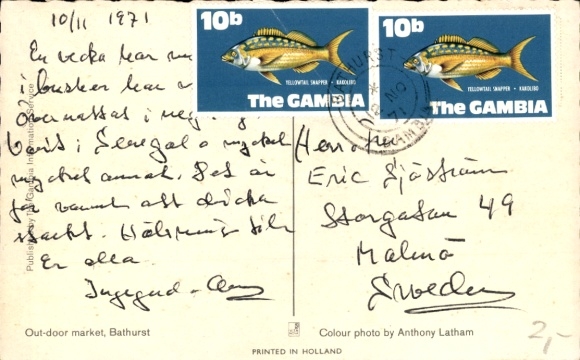 10/11 1971
En vecka har
i bushen har
övernattat i
Varit i Senegal o mycket
mycket annat. Det är
för varmt att dricka
starkt. Hälsningar till
Er alla
Ingegerd -
Herr o fru
Eric Sjöström
Storgatan 49
Malmö
Sweden
10b
YELLOWTAIL SNAPPER • KAROLIBO
The GAMBIA
10b
YELLOWTAIL SNAPPER • KAROLIBO
The GAMBIA
BATHURST
NO
71
GAMBIA
Published by The Gambia Information Service
Out-door market, Bathurst
Colour photo by Anthony Latham
PRINTED IN HOLLAND
2,-